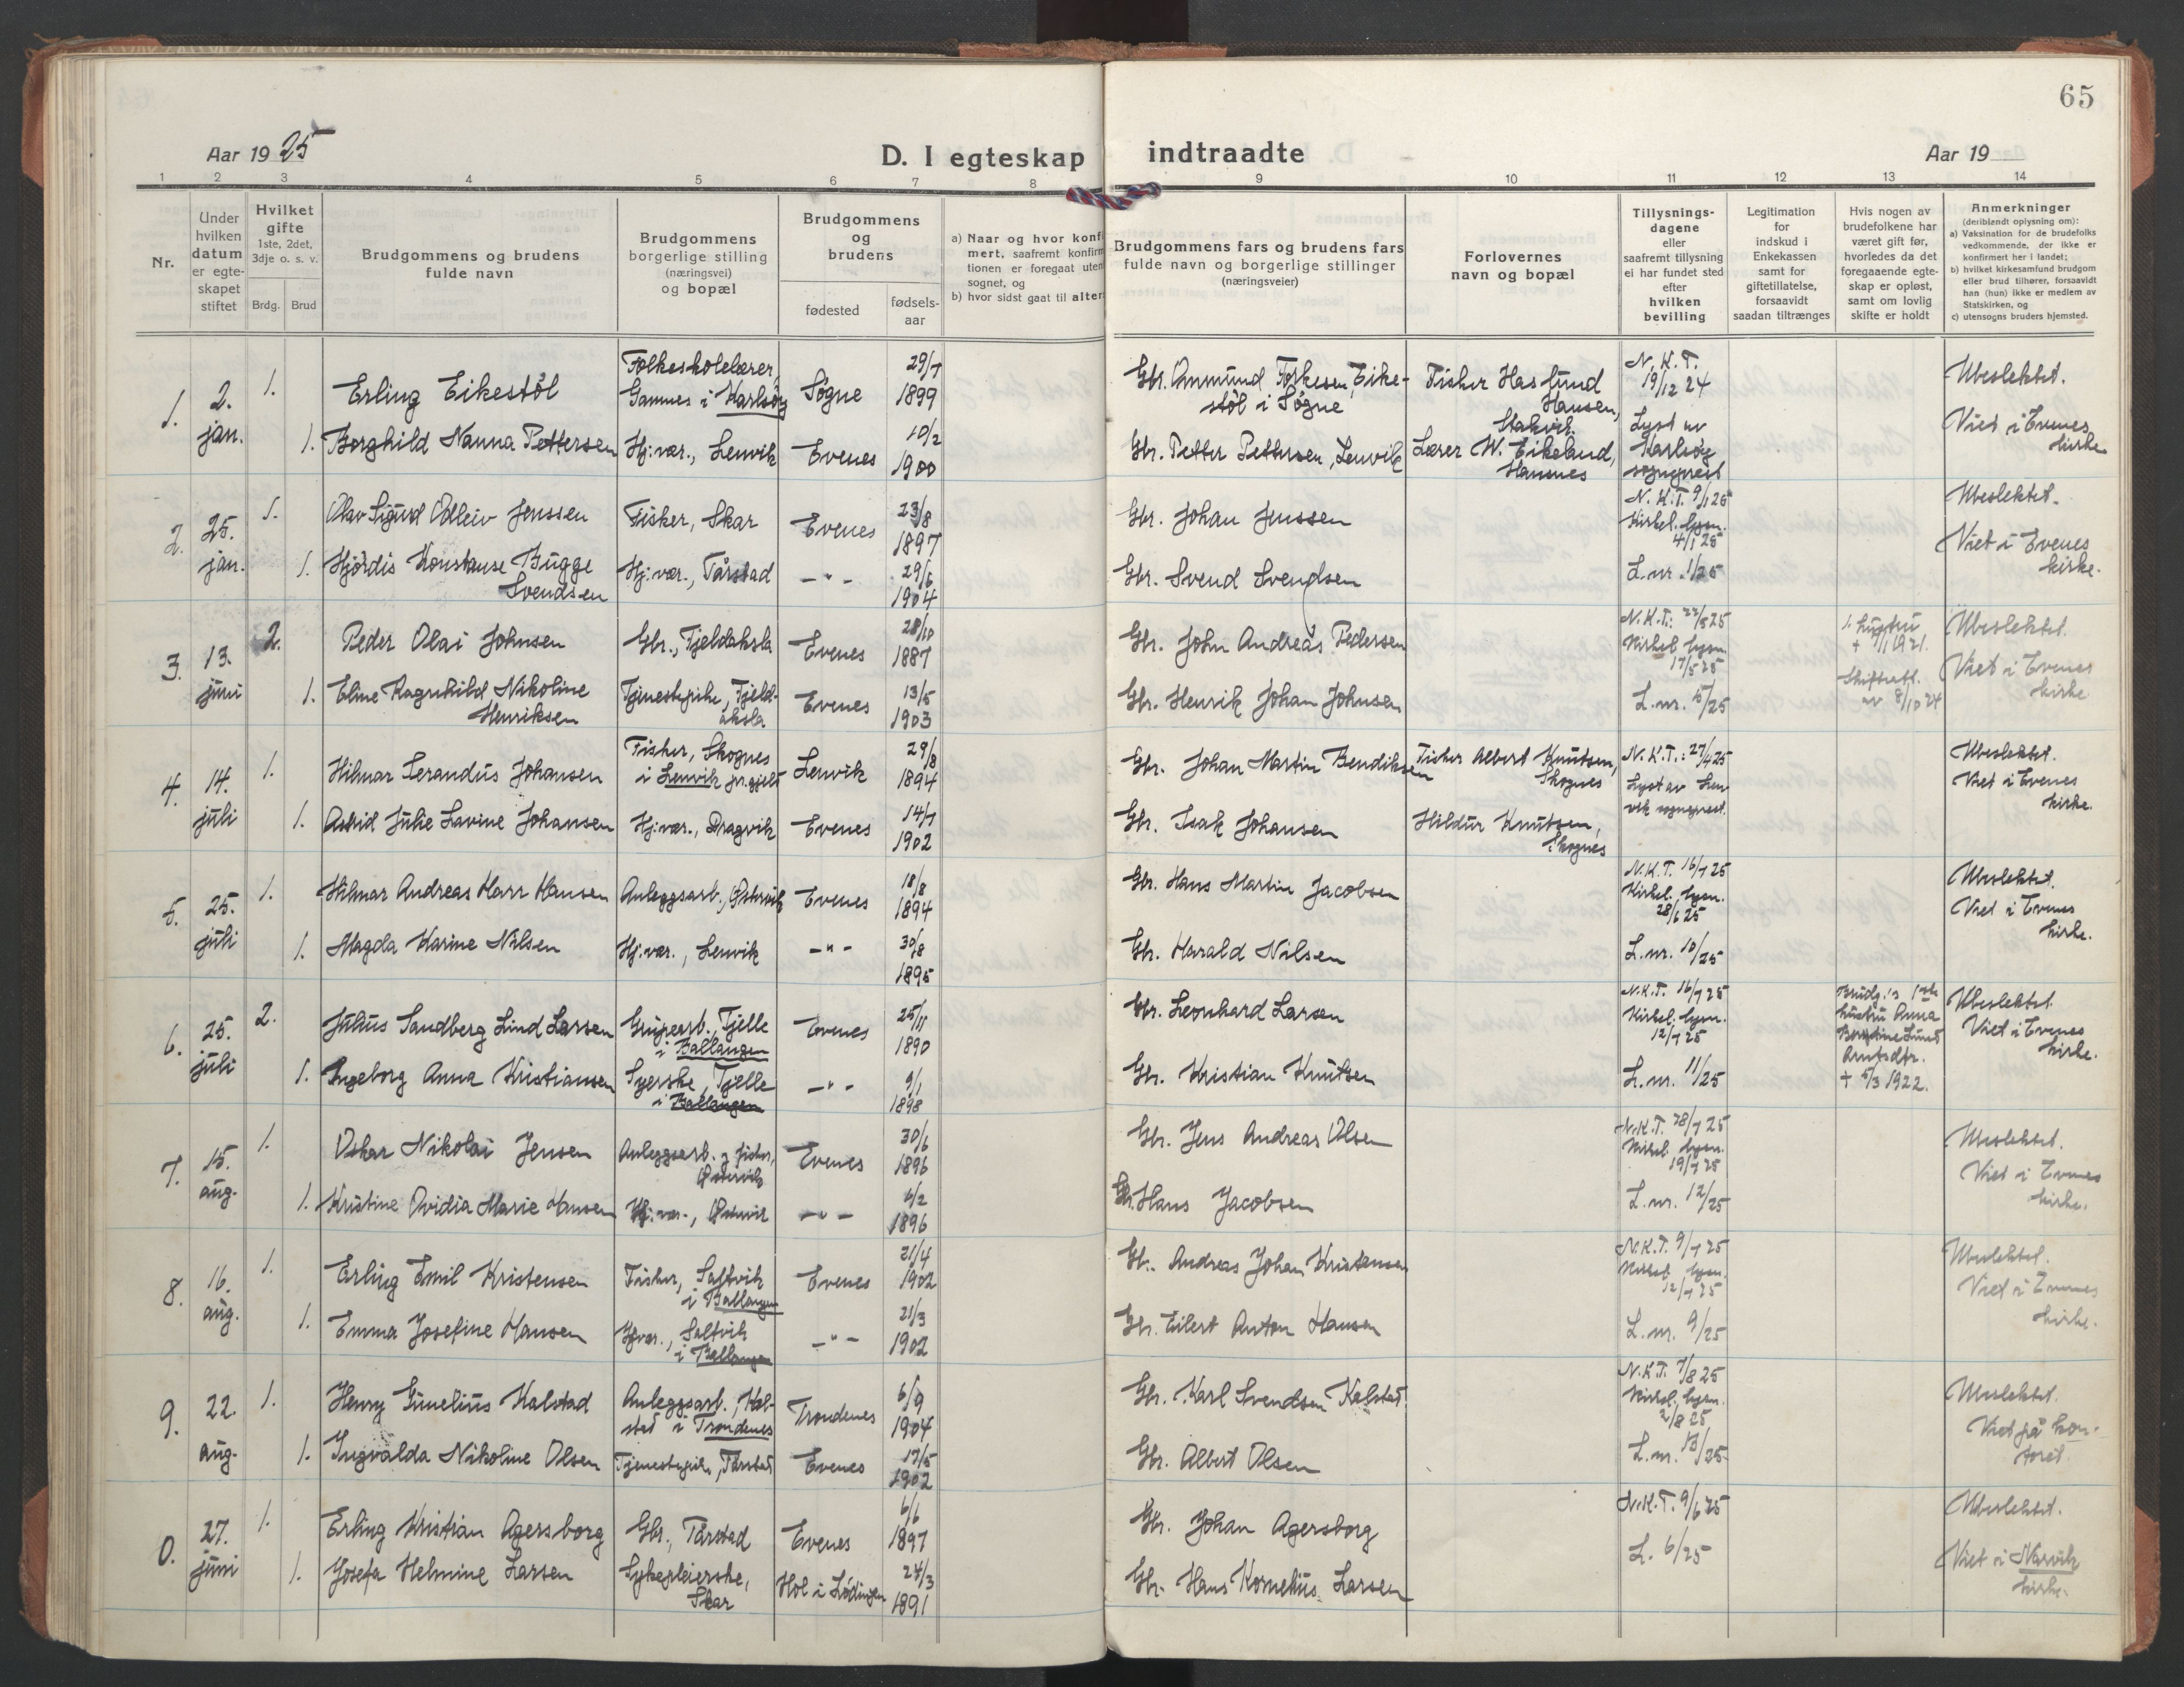 65
Aar 1925
D. I egteskap indtraadte
Aar 19
1 2 3 4 5 6 7 8 9 10 11 12 13 14
Nr.
Under hvilken datum er egte-skapet stiftet
Hvilket gifte 1ste, 2det, 3dje o. s. v.
Brdg. Brud
Brudgommens og brudens fulde navn
Brudgommens borgerlige stilling (næringsvei) og bopæl
Brudgommens og brudens
fødested
fødsels-aar
a) Naar og hvor konf
mert, saafremt konfirm
tionen er foregaat uten
sognet, og
b) hvor sidst gaat til alter
Brudgommens fars og brudens fars fulde navn og borgerlige stillinger (næringsveier)
Forlovernes navn og bopæl
Tillysnings-dagene eller saafremt tillysning ei har fundet sted efter hvilken bevilling
Legitimation for indskud i Enkekassen samt for giftetillatelse, forsaavidt saadan tiltrænges
Hvis nogen av brudefolkene har været gift før, hvorledes da det foregaaende egte-skap er opløst, samt om lovlig skifte er holdt
Anmerkninger
(deriblandt oplysning om):
a) Vaksination for de brudefolks vedkommende, der ikke er konfirmert her i landet;
b) hvilket kirkesamfund brudgom eller brud tilhører, forsaavidt han (hun) ikke er medlem av Statskirken, og
c) utensogns bruders hjemsted.
1. 2. jan. 1. Erling Eikestøl Folkeskolelærer, Gamnes i Karlsøy Søgne 29/7 1899 Gbr. Anmund Torkesen Eike-støl i Søgne Fisker Haslund Hansen, Stakvik N.K.T. 19/12 24 Ubeslektet.
1. Borghild Nanna Pettersen Hj:vær., Lenvik Evenes 10/2 1900 Gbr. Petter Pettersen, Lenvik Lærer W. Eikeland, Hansnes Lyst av Karlsøy sogneprest Viet i Evenes kirke
2. 25. jan. 1. Olav Sigurd Odleiv Jenssen Fisker, Skar Evenes 23/8 1897 Gbr. Johan Jenssen N.K.T. 9/1 25 Kirkel. lysn. 4/1 25 Ubeslektet.
1. Hjørdis Konstanse Bugge Svendsen Hj:vær., Tårstad -"- 29/6 1904 Gbr. Svend Svendsen L.nr. 1/25 Viet i Evenes kirke.
3. 13. juni 2. Peder Olai Johnsen Gbr., Fjeldaksla Evenes 28/10 1887 Gbr. John Andreas Pedersen N.K.T. 22/5 25 Kirkel. lysn. 17/5 25 1. hustru + 9/1 1921. Ubeslektet.
1. Eline Ragnhild Nikoline Henriksen Tjenestepike, Fjeld-aksla Evenes 13/5 1903 Gbr. Henrik Johan Johnsen L.nr. 5/25 Skifteatt. av 8/10 24 Viet i Evenes kirke
4. 14. juli 1. Hilmar Serandus Johansen Fisker, Skognes i Lenvik pr.gjeld Lenvik 29/8 1894 Gbr. Johan Martin Bendiksen Fisker Albert Knutsen, Skognes N.K.T.: 27/4 25 Ubeslektet.
1. Astrid Julie Lavine Johansen Hj:vær., Dragvik Evenes 14/7 1902 Gbr. Isak Johansen Hildur Knutsen, Skognes Lyst av Len vik sogneprest. Viet i Evenes kirke.
5. 25. juli 1. Hilmar Andreas Harr Hansen Anleggsarb., Østervik Evenes 18/8 1894 Gbr. Hans Martin Jacobsen N.K.T. 16/7 25 Kirkel. lysn. 28/6 25 Ubeslektet.
1. Magda Karine Nilsen Hj:vær., Lenvik -"- 30/8 1895 Gbr. Harald Nilsen L.nr. 10/25 Viet i Evenes kirke.
6. 25. juli 2. Julius Sandberg Lind Larsen Grubearb., Fjelle i Ballangen Evenes 25/11 1890 Gbr. Leonhard Larsen N.K.T. 16/7 25 Kirkel. lysn. 12/7 25 Brudg.'s 1ste hustru Anna Arntsdtr. + 5/3 1922. Ubeslektet.
1. Ingeborg Anna Kristiansen Syerske, Fjelle i Ballangen -"- 9/1 1898 Gbr. Kristian Knutsen L.nr. 11/25 Viet i Evenes kirke.
7. 15. aug. 1. Oskar Nikolai Jensen Anleggsarb. og fisker, Østervik Evenes 30/6 1896 Gbr. Jens Andreas Olsen N.K.T. 28/7 25 Kirkel. lysn. 19/7 25 Ubeslektet.
1. Kristine Ovidia Marie Hansen Hj:vær., Østervik -"- 6/2 1896 Gbr. Hans Jacobsen L.nr. 12/25 Viet i Evenes kirke.
8. 16. aug. 1. Erling Emil Kristensen Fisker, Saltvik i Ballangen Evenes 21/4 1902 Gbr. Andreas Johan Kristensen N.K.T. 9/7 25 Kirkel. lysn. 12/7 25 Ubeslektet.
1. Emma Josefine Hansen Hjvær., Saltvik i Ballangen -"- 21/3 1902 Gbr. Eilert Anton Hansen L.nr. 9/25 Viet i Evenes kirke.
9. 22. aug. 1. Henry Gunelius Kalstad Anleggsarb., Kal-stad i Trondenes Trondenes 6/9 1904 Gbr. Karl Svendsen Kalstad N.K.T. 7/8 25 Kirkel. lysn. 2/8 25 Ubeslektet.
1. Ingvalda Nikoline Olsen Tjenestepike, Tårstad Evenes 17/5 1902 Gbr. Albert Olsen L.nr. 13/25 Viet på kon-toret.
0. 27. juni 1. Erling Kristian Agersborg Gbr., Tårstad Evenes 6/6 1897 Gbr. Johan Agersborg N.K.T. 9/6 25 Ubeslektet.
1. Josefa Helmine Larsen Sykepleierske, Skar Hol i Lødingen 24/3 1891 Gbr. Hans Kornelius Larsen L. 6/25 Viet i Narvik kirke.